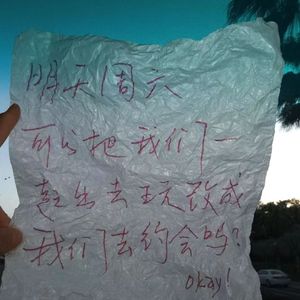 明天周六
可以把我们一
起出去玩改成
我们去约会吗?
okay!